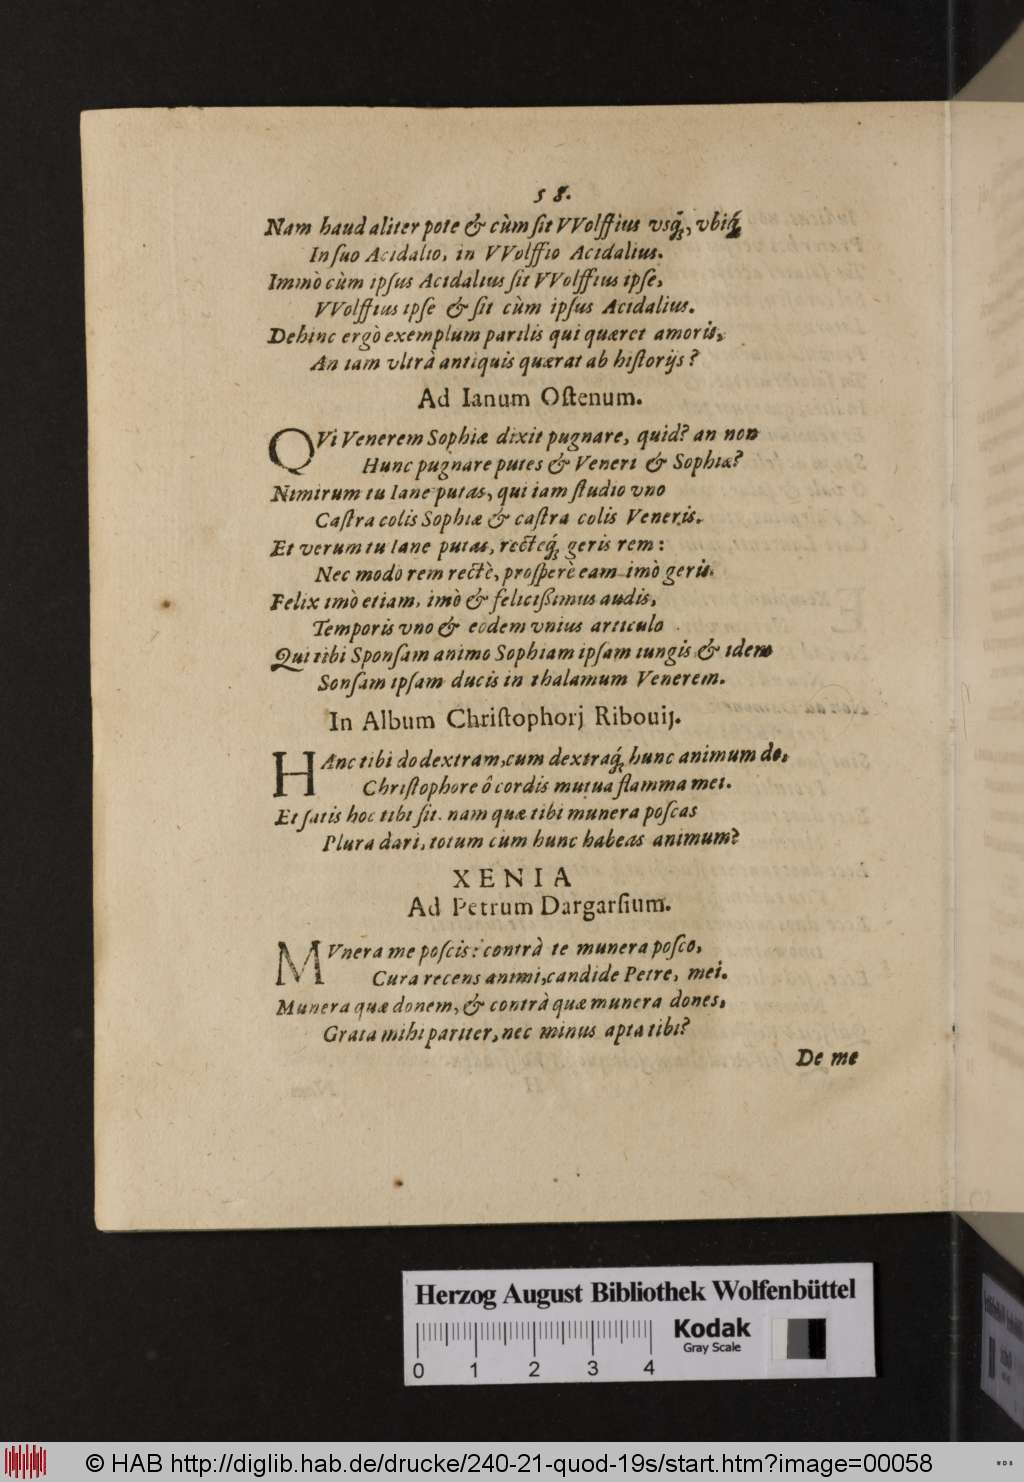 58.
Nam haud aliter pote & cùm sit VVolffius vsq́;, vbiq́;
In suo Acidalio, in VVolffio Acidalius.
Immò cùm ipsus Acidalius sit VVolffius ipse,
VVolffius ipse & sit cùm ipsus Acidalius.
Dehinc ergò exemplum parilis qui quæret amoris,
An iam vltrà antiquis quærat ab historijs?
Ad Ianum Ostenum.
QVi Venerem Sophiæ dixit pugnare, quid? an non
Hunc pugnare putes & Veneri & Sophiæ?
Nimirum tu Iane putas, qui iam studio vno
Castra colis Sophiæ & castra colis Veneris.
Et verum tu Iane putas, recteq́; geris rem:
Nec modò rem rectè, prosperè eam imò geris.
Felix imò etiam, imò & felicißimus audis,
Temporis vno & eodem vnius articulo
Qui tibi Sponsam animo Sophiam ipsam iungis & idem
Sonsam ipsam ducis in thalamum Venerem.
In Album Christophorj Ribouij.
HAnc tibi do dextram, cum dextraq́; hunc animum do,
Christophore ô cordis mutua flamma mei.
Et satis hoc tibi sit. nam quæ tibi munera poscas
Plura dari, totum cum hunc habeas animum?
XENIA
Ad Petrum Dargarsium.
MVnera me poscis: contrà te munera posco,
Cura recens animi, candide Petre, mei.
Munera quæ donem, & contrà quæ munera dones,
Grata mihi pariter, nec minus apta tibi?
De me
Herzog August Bibliothek Wolfenbüttel
0 1 2 3 4
Kodak
Gray Scale
© HAB http://diglib.hab.de/drucke/240-21-quod-19s/start.htm?image=00058